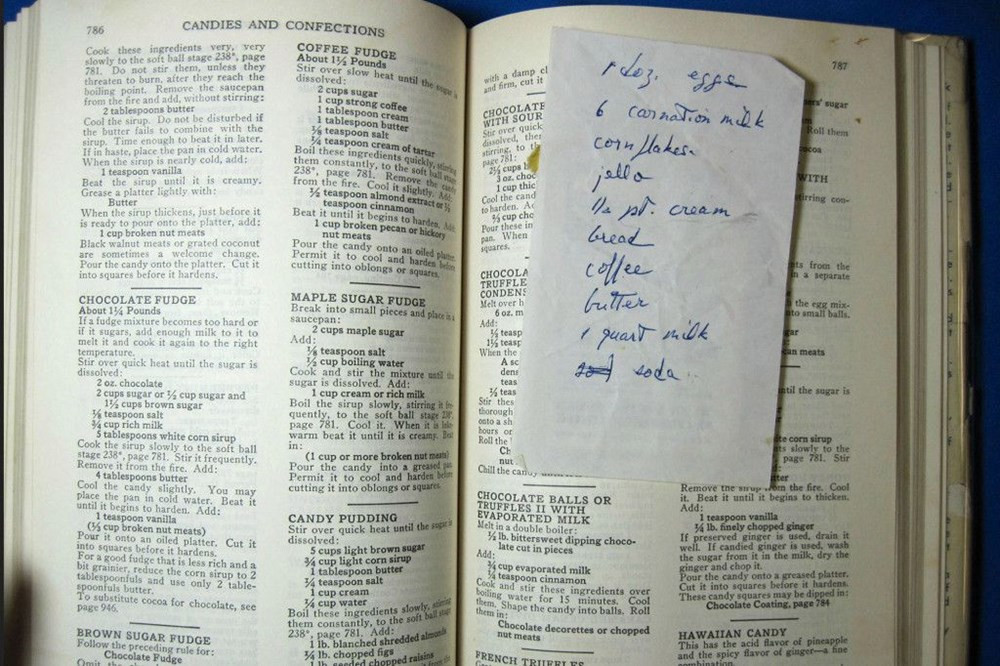 786
CANDIES AND CONFECTIONS
Cook these ingredients very, very
slowly to the soft ball stage 238°, page
781. Do not stir them, unless they
threaten to burn, after they reach the
boiling point. Remove the saucepan
from the fire and add, without stirring:
2 tablespoons butter
Cool the sirup. Do not be disturbed if
the butter fails to combine with the
sirup. Time enough to beat it in later.
If in haste, place the pan in cold water.
When the sirup is nearly cold, add:
1 teaspoon vanilla
Beat the sirup until it is creamy.
Grease a platter lightly with:
Butter
When the sirup thickens, just before it
is ready to pour onto the platter, add:
1 cup broken nut meats
Black walnut meats or grated coconut
are sometimes a welcome change.
Pour the candy onto the platter. Cut it
into squares before it hardens.
CHOCOLATE FUDGE
About 1¼ Pounds
If a fudge mixture becomes too hard or
if it sugars, add enough milk to it to
melt it and cook it again to the right
temperature.
Stir over quick heat until the sugar is
dissolved:
2 oz. chocolate
2 cups sugar or ½ cup sugar and
1½ cups brown sugar
⅛ teaspoon salt
¾ cup rich milk
5 tablespoons white corn sirup
Cook the sirup slowly to the soft ball
stage 238°, page 781. Stir it frequently.
Remove it from the fire. Add:
4 tablespoons butter
Cool the candy slightly. You may
place the pan in cold water. Beat it
until it begins to harden. Add:
1 teaspoon vanilla
(⅓ cup broken nut meats)
Pour it onto an oiled platter. Cut it
into squares before it hardens.
For a good fudge that is less rich and a
bit grainier, reduce the corn sirup to 2
tablespoonfuls and use only 2 table-
spoonfuls butter.
To substitute cocoa for chocolate, see
page 946.
BROWN SUGAR FUDGE
Follow the preceding rule for:
Chocolate Fudge
Omit the
COFFEE FUDGE
About 1½ Pounds
Stir over slow heat until the sugar is
dissolved:
2 cups sugar
1 cup strong coffee
1 tablespoon cream
1 tablespoon butter
⅛ teaspoon salt
¼ teaspoon cream of tartar
Boil these ingredients quickly, stirring
them constantly, to the soft ball stage
238°, page 781. Remove the candy
from the fire. Cool it slightly. Add:
½ teaspoon almond extract or ½
teaspoon cinnamon
Beat it until it begins to harden. Add:
1 cup broken pecan or hickory
nut meats
Pour the candy onto an oiled platter.
Permit it to cool and harden before
cutting into oblongs or squares.
MAPLE SUGAR FUDGE
Break into small pieces and place in a
saucepan:
2 cups maple sugar
Add:
⅛ teaspoon salt
½ cup boiling water
Cook and stir the mixture until the
sugar is dissolved. Add:
1 cup cream or rich milk
Boil the sirup slowly, stirring it fre-
quently, to the soft ball stage 238°,
page 781. Cool it. When it is luke-
warm beat it until it is creamy. Beat
in:
(1 cup or more broken nut meats)
Pour the candy into a greased pan.
Permit it to cool and harden before
cutting it into oblongs or squares.
CANDY PUDDING
Stir over quick heat until the sugar is
dissolved:
5 cups light brown sugar
¾ cup light corn sirup
1 tablespoon butter
¾ teaspoon salt
1 cup cream
¾ cup water
Boil these ingredients slowly, stirring
them constantly, to the soft ball stage
238°, page 781. Add:
1 lb. blanched shredded almonds
¾ lb. chopped figs
1 lb. seeded chopped raisins
1 doz. eggs
6 carnation milk
corn flakes.
jello
½ pt. cream
bread
coffee
butter
1 quart milk
soda
787
with a damp cl
and firm, cut it
CHOCOLATE
WITH SOUR
Stir over quick
dissolved, the
stirring, to th
page 781:
2½ cups
3 oz. choc
1 cup thic
Cool the cand
to harden. A
⅔ cup cho
Pour these in
pan. When
squares.
CHOCOLA
TRUFFLE
CONDENS
Melt over h
6 oz.
Add:
teasp
teasp
When the
A sc
dens
teas
teas
Stir thes
thorough
onto a sh
hours or
Roll the
Ch
nut
Chill the candy
CHOCOLATE BALLS OR
TRUFFLES II WITH
EVAPORATED MILK
Melt in a double boiler:
½ lb. bittersweet dipping choco-
late cut in pieces
Add:
¾ cup evaporated milk
¼ teaspoon cinnamon
Cook and stir these ingredients over
boiling water for 15 minutes. Cool
them. Shape the candy into balls. Roll
them in:
Chocolate decorettes or chopped
nut meats
FRENCH TRUFFLES
ers' sugar
Roll them
ocoa
WITH
tirring con-
nts from the
in a separate
h the egg mix-
to small balls.
gar
can meats
til the sugar is
te corn sirup
ts slowly to the
page 781. Stir
tter
Remove the sirup from the fire. Cool
it. Beat it until it begins to thicken.
Add:
1 teaspoon vanilla
¾ lb. finely chopped ginger
If preserved ginger is used, drain it
well. If candied ginger is used, wash
the sugar from it in the milk, dry the
ginger and chop it.
Pour the candy onto a greased platter.
Cut it into squares before it hardens.
These candy squares may be dipped in:
Chocolate Coating, page 784
HAWAIIAN CANDY
This has the acid flavor of pineapple
and the spicy flavor of ginger—a fine
combination.